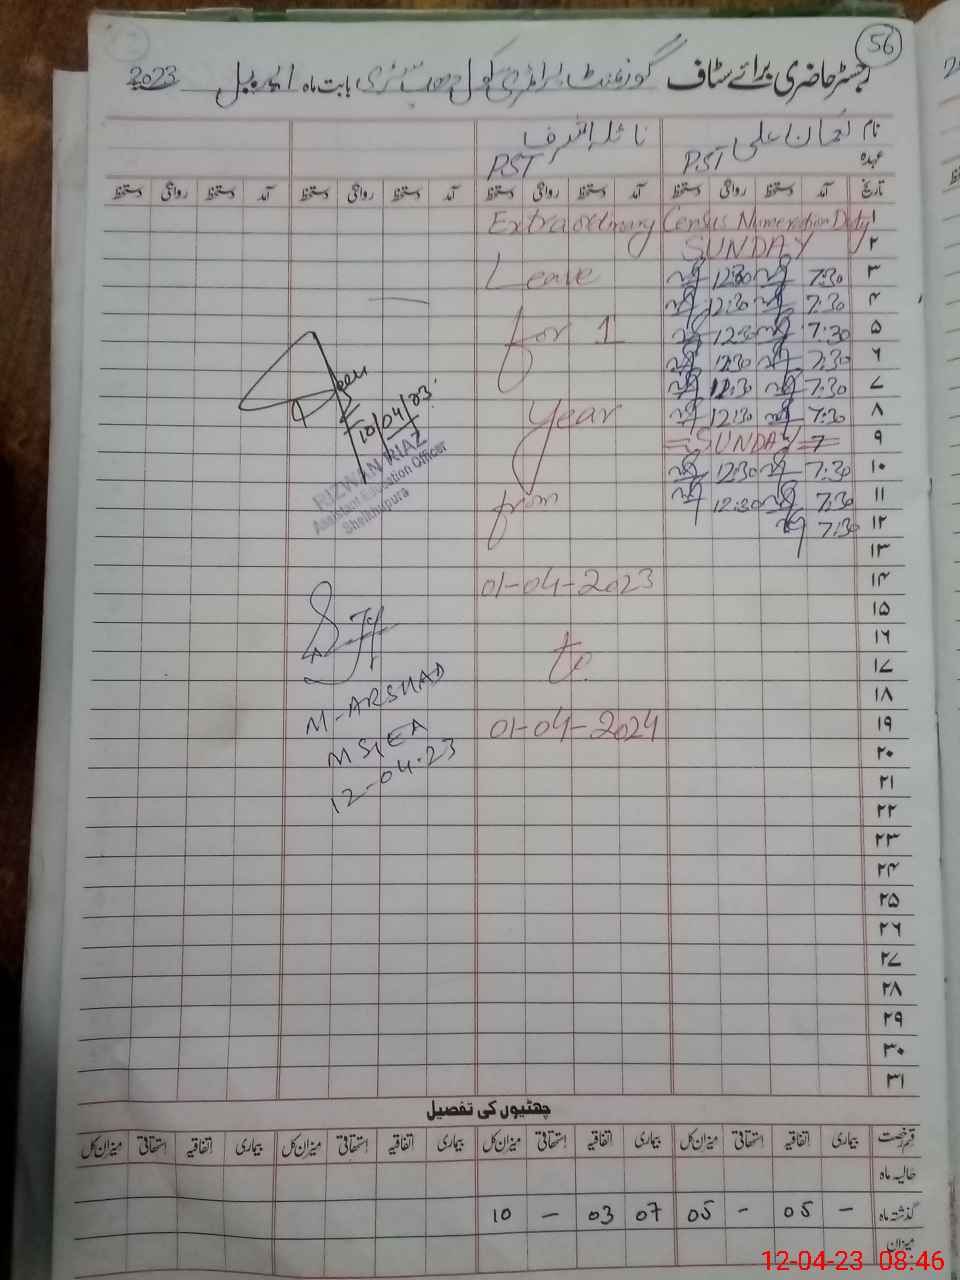 56
رجسٹر حاضری برائے سٹاف گورنمنٹ پرائمری سکول بابت ماہ اپریل 2023
نام نعمان علی نائلہ اشرف
عہدہ PST PST
تاریخ آمد دستخط روانگی دستخط آمد دستخط روانگی دستخط آمد دستخط روانگی دستخط آمد دستخط روانگی دستخط
۱ Census Numeration Duty Extraordinary
۲ SUNDAY
۳ 7:30 12:30 Leave
۴ 7:30 12:30
۵ 7:30 12:30 for 1
۶ 7:30 12:30
۷ 7:30 12:30
۸ 7:30 12:30 Year
۹ =SUNDAY=
۱۰ 7:30 12:30
۱۱ 7:30 12:30 from
۱۲ 7:30
۱۳
۱۴ 01-04-2023
۱۵
۱۶
۱۷ to
۱۸
۱۹ 01-04-2024
۲۰
۲۱
۲۲
۲۳
۲۴
۲۵
۲۶
۲۷
۲۸
۲۹
۳۰
۳۱
10/04/23
RIZWAN RIAZ
Assistant Education Officer
Sheikhupura
M-ARSHAD
MSIEA
12-04-23
چھٹیوں کی تفصیل
قسم رخصت بیماری اتفاقیہ استحقاقی میزان کل بیماری اتفاقیہ استحقاقی میزان کل بیماری اتفاقیہ استحقاقی میزان کل بیماری اتفاقیہ استحقاقی میزان کل
حالیہ ماہ
گذشتہ ماہ - 05 - 05 07 03 - 10
میزان
12-04-23 08:46